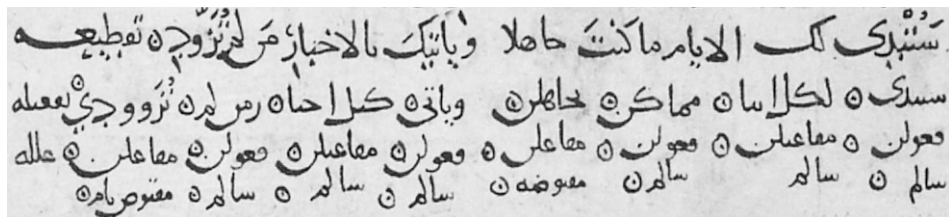 سَتُبْدِي لك الايام ما كنتَ جاهلا وياتيكَ بالاخبارِ مَن لم تُزَوِّدِ تقطيعه
ستبدي لكل ايبا مماكن تجاهلن وياتي كبل اخبا رمن لم تُزَوودِيْ تفعيله
فعولن مفاعيلن فعولن مفاعلن فعولن مفاعيلن فعولن مفاعلن علله
سالم سالم سالم مقبوضه سالم سالم سالم مقبوض تام